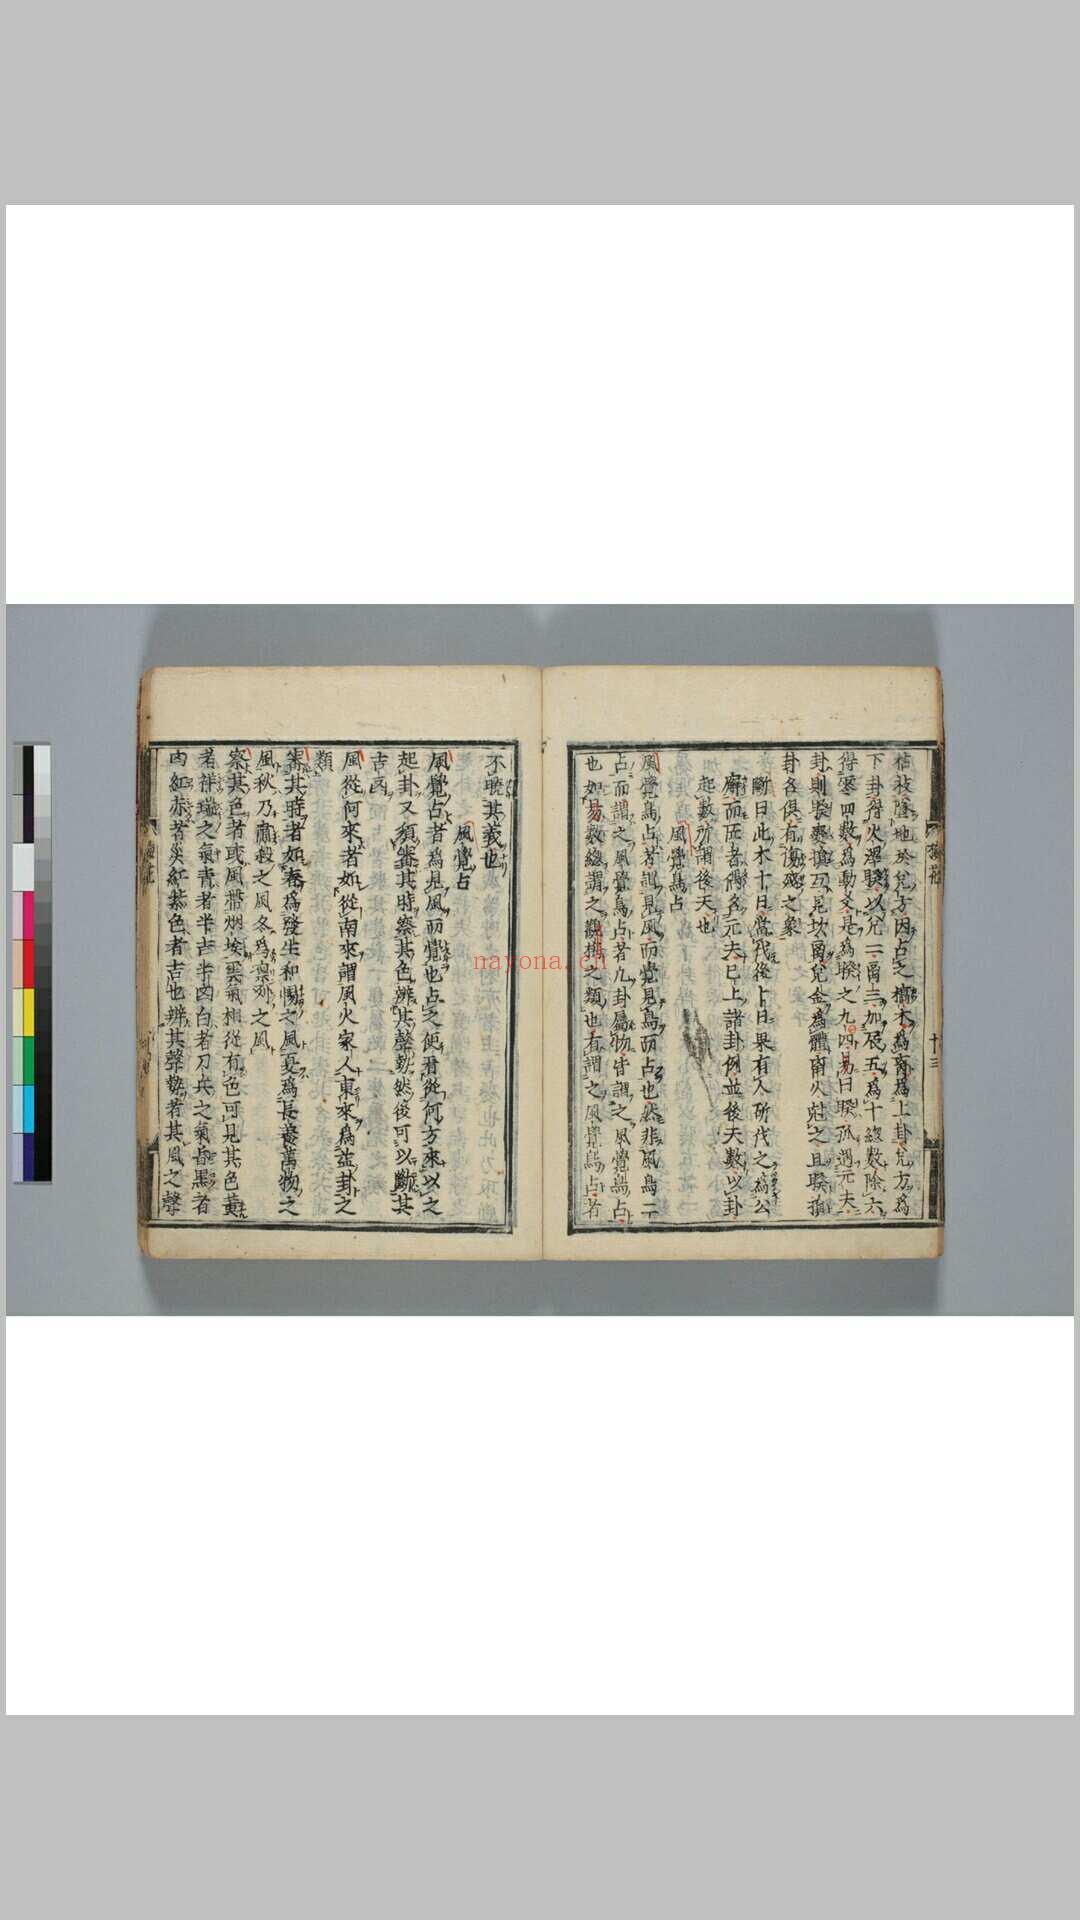 枯枝墜地於兌方因占之槁木為离為上卦兌方為
下卦得火澤睽以兌二离三加辰五為十總數除六
得零四數為動爻是為睽之九四易曰睽孤遇元夫
卦則睽變損互見坎离兌金為體离火尅之且睽損
卦各俱有傷殘之象
斷曰此木十日當伐後十日果有人斫伐之為公
廨而匠者偶名元夫已上諸卦例並後天數以卦
起數所謂後天也
風覺鳥占
風覺鳥占者謂見風而覺見鳥而占也然非風鳥二
占而謂之風覺鳥占者凡卦屬物皆謂之風覺鳥占
也如易數總謂之觀梅之類也有謂之風覺鳥占者
不曉其義也
風覺占
風覺占者為見風而覺也占之便看從何方來以之
起卦又須審其時察其色辨其聲勢然後可以斷其
吉凶
風從何來者如從南來謂風火家人東來為益卦之
類
審其時者如春為發生和暢之風夏為長養萬物之
風秋乃肅殺之風冬為凛冽之風
察其色者或風帶烟埃雲氣相從有色可見其色黃
者祥瑞之氣青者半吉半凶白者刀兵之氣昏黑者
凶紅赤者災紅紫色者吉也辨其聲勢者其風之聲
十三
nayona.ch